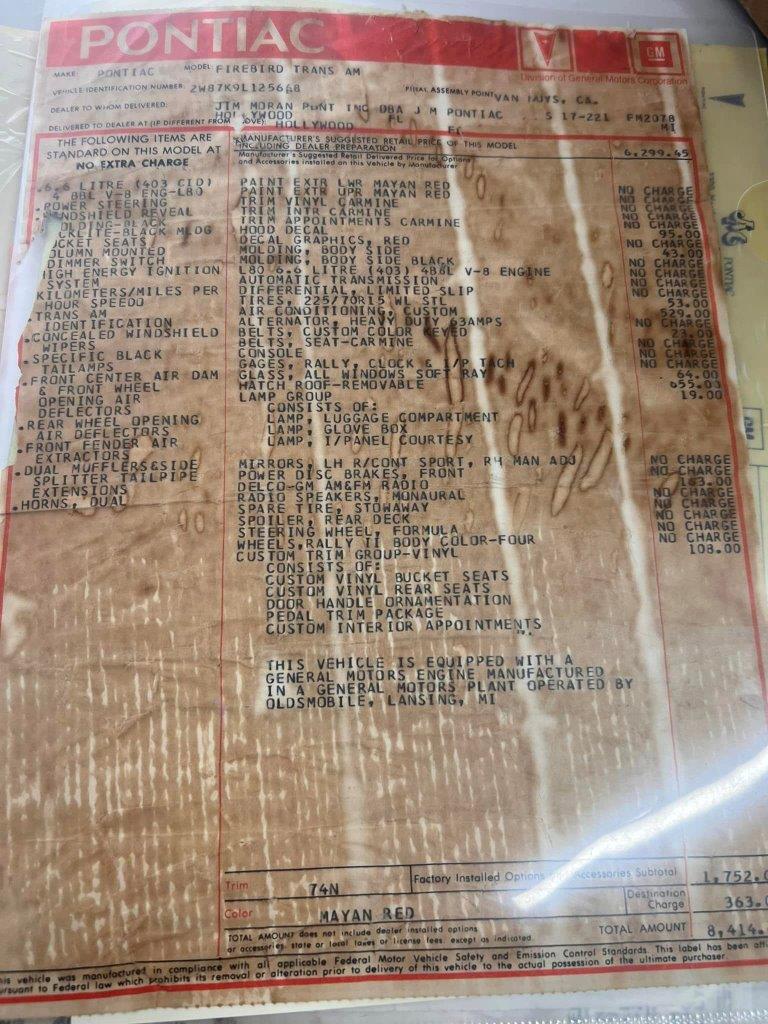 PONTIAC
GM
Division of General Motors Corporation
MAKE: PONTIAC MODEL FIREBIRD TRANS AM
VEHICLE IDENTIFICATION NUMBER: 2W87K9L125668 FINAL ASSEMBLY POINT VAN NUYS, CA.
DEALER TO WHOM DELIVERED: JIM MORAN PONT INC DBA J M PONTIAC S 17-221 FM2078
HOLLYWOOD FL MI
DELIVERED TO DEALER AT (IF DIFFERENT FROM ABOVE) HOLLYWOOD
THE FOLLOWING ITEMS ARE
STANDARD ON THIS MODEL AT
NO EXTRA CHARGE
.6.6 LITRE (403 CID)
4 BBL V-8 ENG-L80
.POWER STEERING
WINDSHIELD REVEAL
MOLDING-BLACK
BUCKET SEATS
COLUMN MOUNTED
DIMMER SWITCH
HIGH ENERGY IGNITION
SYSTEM
KILOMETERS/MILES PER
HOUR SPEEDO
.TRANS AM
IDENTIFICATION
.CONCEALED WINDSHIELD
WIPERS
.SPECIFIC BLACK
TAILAMPS
.FRONT CENTER AIR DAM
& FRONT WHEEL
OPENING AIR
DEFLECTORS
.REAR WHEEL OPENING
AIR DEFLECTORS
.FRONT FENDER AIR
EXTRACTORS
.DUAL MUFFLERS&SIDE
SPLITTER TAILPIPE
EXTENSIONS
.HORNS, DUAL
MANUFACTURER'S SUGGESTED RETAIL PRICE OF THIS MODEL
INCLUDING DEALER PREPARATION 6,299.45
Manufacturer's Suggested Retail Delivered Price for Options
and Accessories Installed on this Vehicle by Manufacturer
PAINT EXTR LWR MAYAN RED NO CHARGE
PAINT EXTR UPR MAYAN RED NO CHARGE
TRIM VINYL CARMINE NO CHARGE
TRIM INTR CARMINE NO CHARGE
TRIM APPOINTMENTS CARMINE NO CHARGE
HOOD DECAL 95.00
DECAL GRAPHICS, RED NO CHARGE
MOLDING, BODY SIDE 43.00
MOLDING, BODY SIDE BLACK NO CHARGE
L80 6.6 LITRE (403) 4BBL V-8 ENGINE NO CHARGE
AUTOMATIC TRANSMISSION NO CHARGE
DIFFERENTIAL, LIMITED SLIP NO CHARGE
TIRES, 225/70R15 WL STL 53.00
AIR CONDITIONING, CUSTOM 529.00
ALTERNATOR, HEAVY DUTY 63AMPS NO CHARGE
BELTS, CUSTOM COLOR KEYED 23.00
BELTS, SEAT-CARMINE NO CHARGE
CONSOLE NO CHARGE
GAGES, RALLY, CLOCK & I/P TACH NO CHARGE
GLASS, ALL WINDOWS SOFT RAY 64.00
HATCH ROOF-REMOVABLE 655.00
LAMP GROUP 19.00
CONSISTS OF:
LAMP, LUGGAGE COMPARTMENT
LAMP, GLOVE BOX
LAMP, I/PANEL COURTESY
MIRRORS, LH R/CONT SPORT, RH MAN ADJ NO CHARGE
POWER DISC BRAKES, FRONT NO CHARGE
DELCO-GM AM&FM RADIO 163.00
RADIO SPEAKERS, MONAURAL NO CHARGE
SPARE TIRE, STOWAWAY NO CHARGE
SPOILER, REAR DECK NO CHARGE
STEERING WHEEL, FORMULA NO CHARGE
WHEELS,RALLY II BODY COLOR-FOUR NO CHARGE
CUSTOM TRIM GROUP-VINYL 108.00
CONSISTS OF:
CUSTOM VINYL BUCKET SEATS
CUSTOM VINYL REAR SEATS
DOOR HANDLE ORNAMENTATION
PEDAL TRIM PACKAGE
CUSTOM INTERIOR APPOINTMENTS
THIS VEHICLE IS EQUIPPED WITH A
GENERAL MOTORS ENGINE MANUFACTURED
IN A GENERAL MOTORS PLANT OPERATED BY
OLDSMOBILE, LANSING, MI
Trim 74N Factory Installed Options Accessories Subtotal 1,752.
Color MAYAN RED Destination Charge 363.
TOTAL AMOUNT does not include dealer installed options
or accessories, state or local taxes or license fees, except as indicated. TOTAL AMOUNT 8,414.
This vehicle was manufactured in compliance with all applicable Federal Motor Vehicle Safety and Emission Control Standards. This label has been
pursuant to Federal law which prohibits its removal or alteration prior to delivery of this vehicle to the actual possession of the ultimate purchaser.